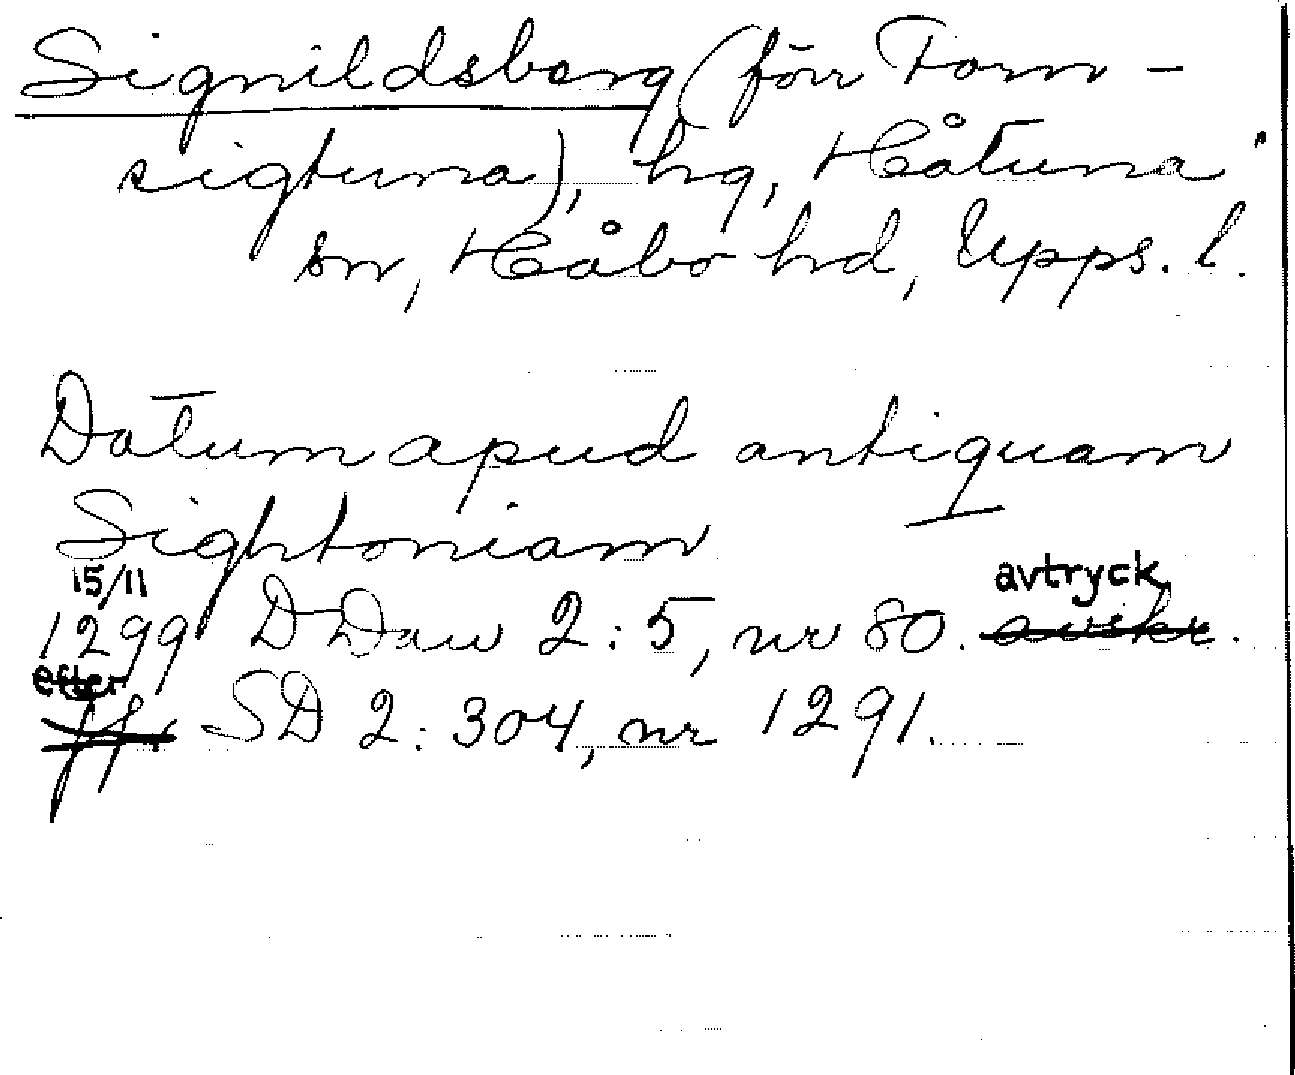 Signildsberg (förr Forn-
sigtuna), hg, Håtuna
sn, Håbo hd, Upps. l.
Datum apud antiquam
Sightoniam
15/11 avtryck
1299 DDan 2:5, nr 80. avskr.
efter
SD 2:304, nr 1291.